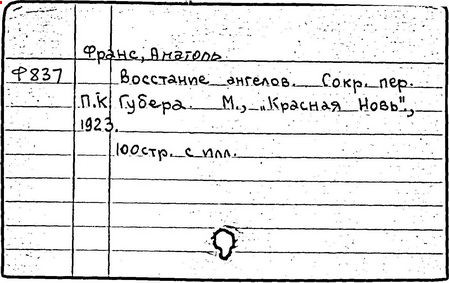 Франс, Анатоль.
Ф837 Восстание ангелов. Сокр. пер.
П.К. Губера. М., „Красная Новь",
1923.
100стр. с илл.